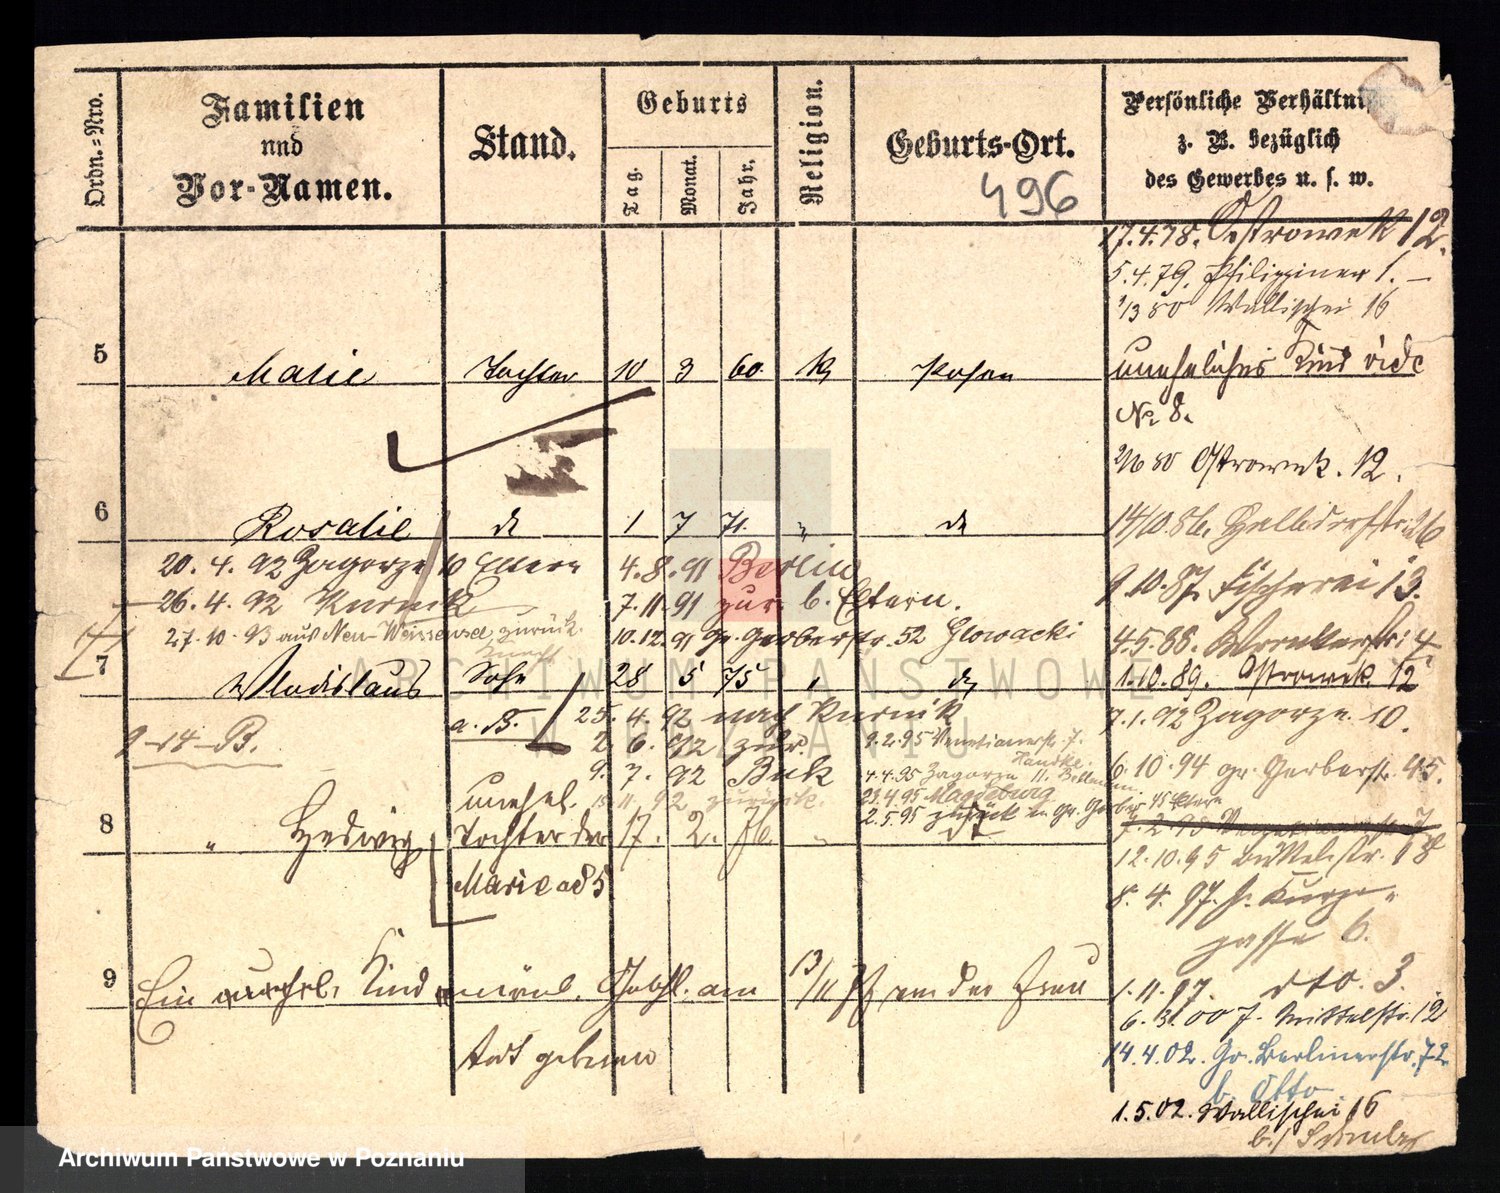 Ordn.-Nro.
Familien
und
Vor-Namen.
Stand.
Geburts
Tag.
Monat.
Jahr.
Religion.
Geburts-Ort.
496
Persönliche Verhältnisse
z. B. bezüglich
des Gewerbes u. s. w.
17.4.78. Ostrowek 12.
5.4.79. Philippiner 1. —
1/3 80 Wallischei 16
5 Marie Tochter 10 3 60. k Posen
uneheliches Kind vide
No 8.
2/6 80 Ostrowek. 12.
6 Rosalie do 1 7 71. " do
14/10.86.
20.4.92 Zagorze 10 Eltern
4.8.91 Berlin
9.10.87. Fischerei 13.
26.4.92 Kurnik
7.11.91 zur. b. Eltern.
27.10.93 aus Neu-Weissensee zurück.
10.12.91 Gr. Gerberstr. 52 Glowacki
4.5.88.
7 Wladislaus Sohn 28 5 75 " do
1.10.89. Ostrowek 12
a. B.
25.4.92 nach Kurnik
7.1.92 Zagorze. 10.
9-14-B.
2.6.92 zur.
9.2.95 Venetianerstr. 7.
Handke.
9.7.92 Buk
4.4.95 Zagorze 11.
6.10.94 gr. Gerberstr. 45.
11.92 zurück.
23.4.95 Magdeburg
2.5.95 zurück in gr. Gerber 45 Eltern
8 " Hedwig
unehel.
Tochter der
Marie ad 5
17. 2. " do
7.2.95 Venetianerstr. 7
12.10.95 Büttelstr. 18
8.4.97. Kurze-
gasse 6.
9 Ein unehel. Kind männl. Geschl. am 13/11 von der Frau
todt geboren
1.11.97. dto. 3.
6.3.00 Mittelstr. 12
14.4.02. Gr. Berlinerstr. 72
b. Otto
1.5.02. Wallischei 16
Archiwum Państwowe w Poznaniu
ARCHIWUM PAŃSTWOWE
W POZNANIU